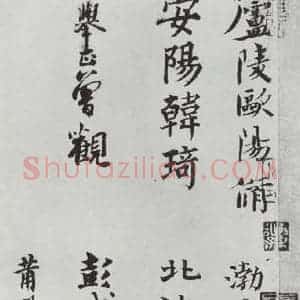 廬陵歐陽脩
渤
安陽韓琦
北
舉正曾觀
彭城
莆
Shufazilian.com